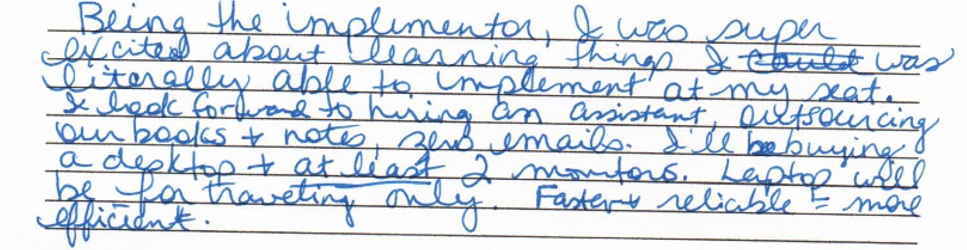 Being the implementor, I was super
excited about learning things I could was
literally able to implement at my seat.
I look forward to hiring an assistant, outsourcing
our books + notes, zero emails. I'll be buying
a desktop + at least 2 monitors. Laptop will
be for traveling only. Faster + reliable = more
efficient.